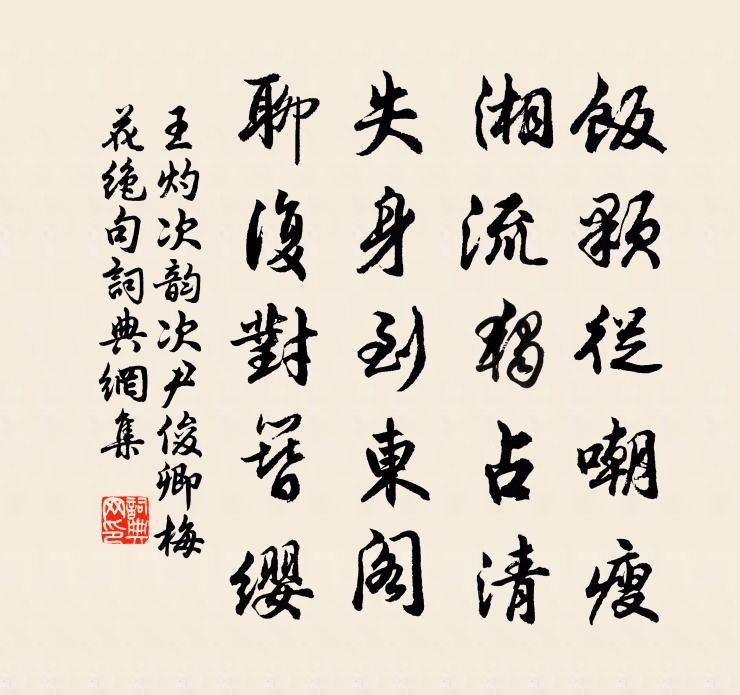 飯顆從嘲瘦
湘流獨占清
失身到東阁
聊復對簪纓
王灼次韵次尹俊卿梅
花绝句詞典網集
詞典
网印